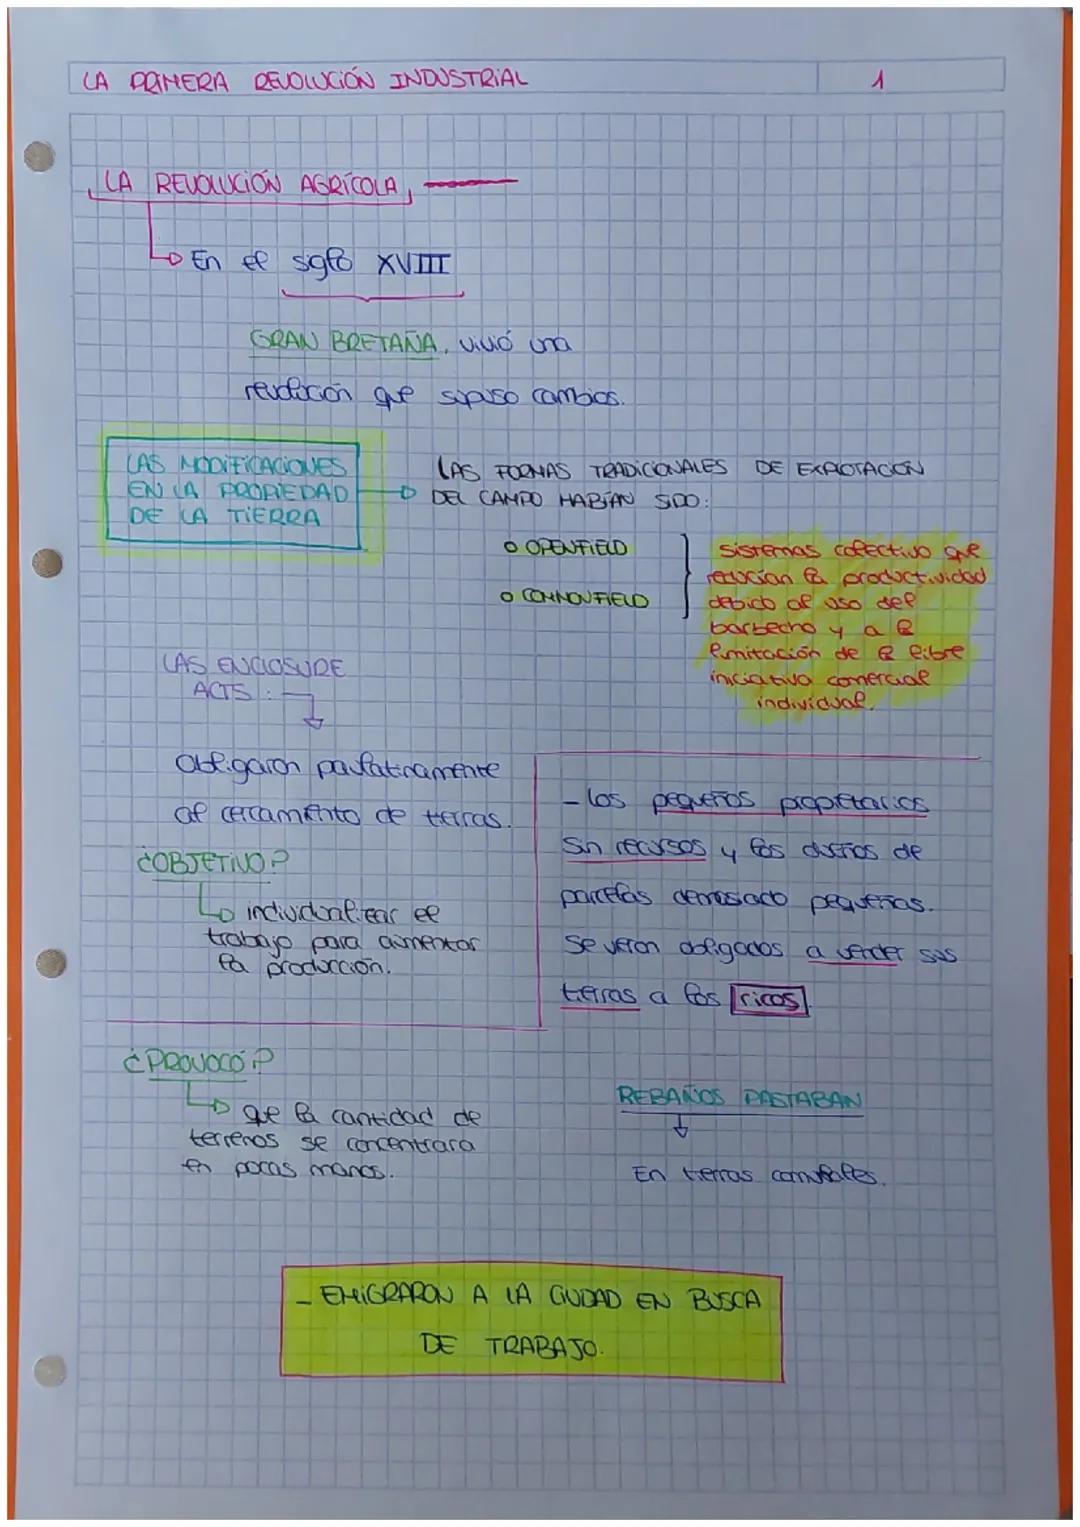 LA PRIMERA REVOLUCIÓN INDUSTRIAL
1
LA REVOLUCIÓN AGRÍCOLA
En el siglo XVIII
GRAN BRETAÑA, vivió una
revolución que supuso cambios.
LAS MODIFICACIONES
EN LA PROPIEDAD
DE LA TIERRA
LAS FORMAS TRADICIONALES DE EXPLOTACIÓN
DEL CAMPO HABÍAN SIDO:
o OPENFIELD
o COMMONFIELD
sistemas colectivo que
reducian la productividad
debido al uso del
barbecho y a la
limitación de la libre
iniciativa comercial
individual.
LAS ENCLOSURE
ACTS :
obligaron paulatinamente
al cercamiento de tierras.
¿OBJETIVO?
individualizar el
trabajo para aumentar
la producción.
- Los pequeños propietarios
sin recursos y los dueños de
parcelas demasiado pequeñas.
se veron obligados a vender sus
tierras a los ricos.
¿PROVOCÓ?
que la cantidad de
terrenos se concentrara
en pocas manos.
REBAÑOS PASTABAN
En tierras comunales.
- EMIGRARON A LA CIUDAD EN BUSCA
DE TRABAJO.